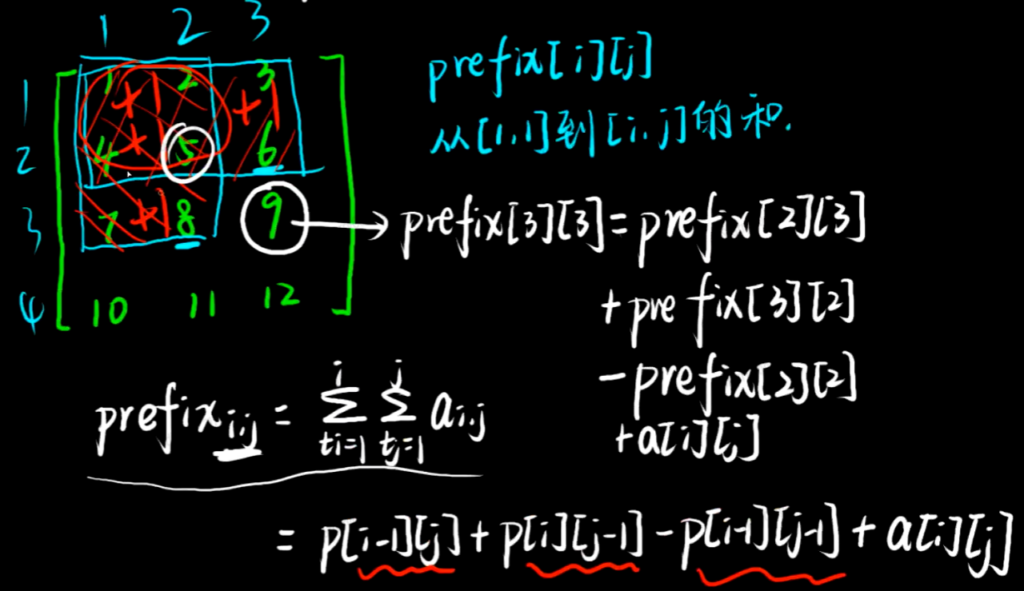 1 2 3
1 1 2 3
+1 +1
2 4 5 6
+1
3 7 8 9
+1
4 10 11 12
prefix[i][j]
从[1,1]到[i,j]的和.
prefix[3][3]=prefix[2][3]
+prefix[3][2]
-prefix[2][2]
+a[i][j]
prefix i,j = i∑ti=1 j∑tj=1 ai,j
= p[i-1][j]+p[i][j-1]-p[i-1][j-1]+a[i][j]